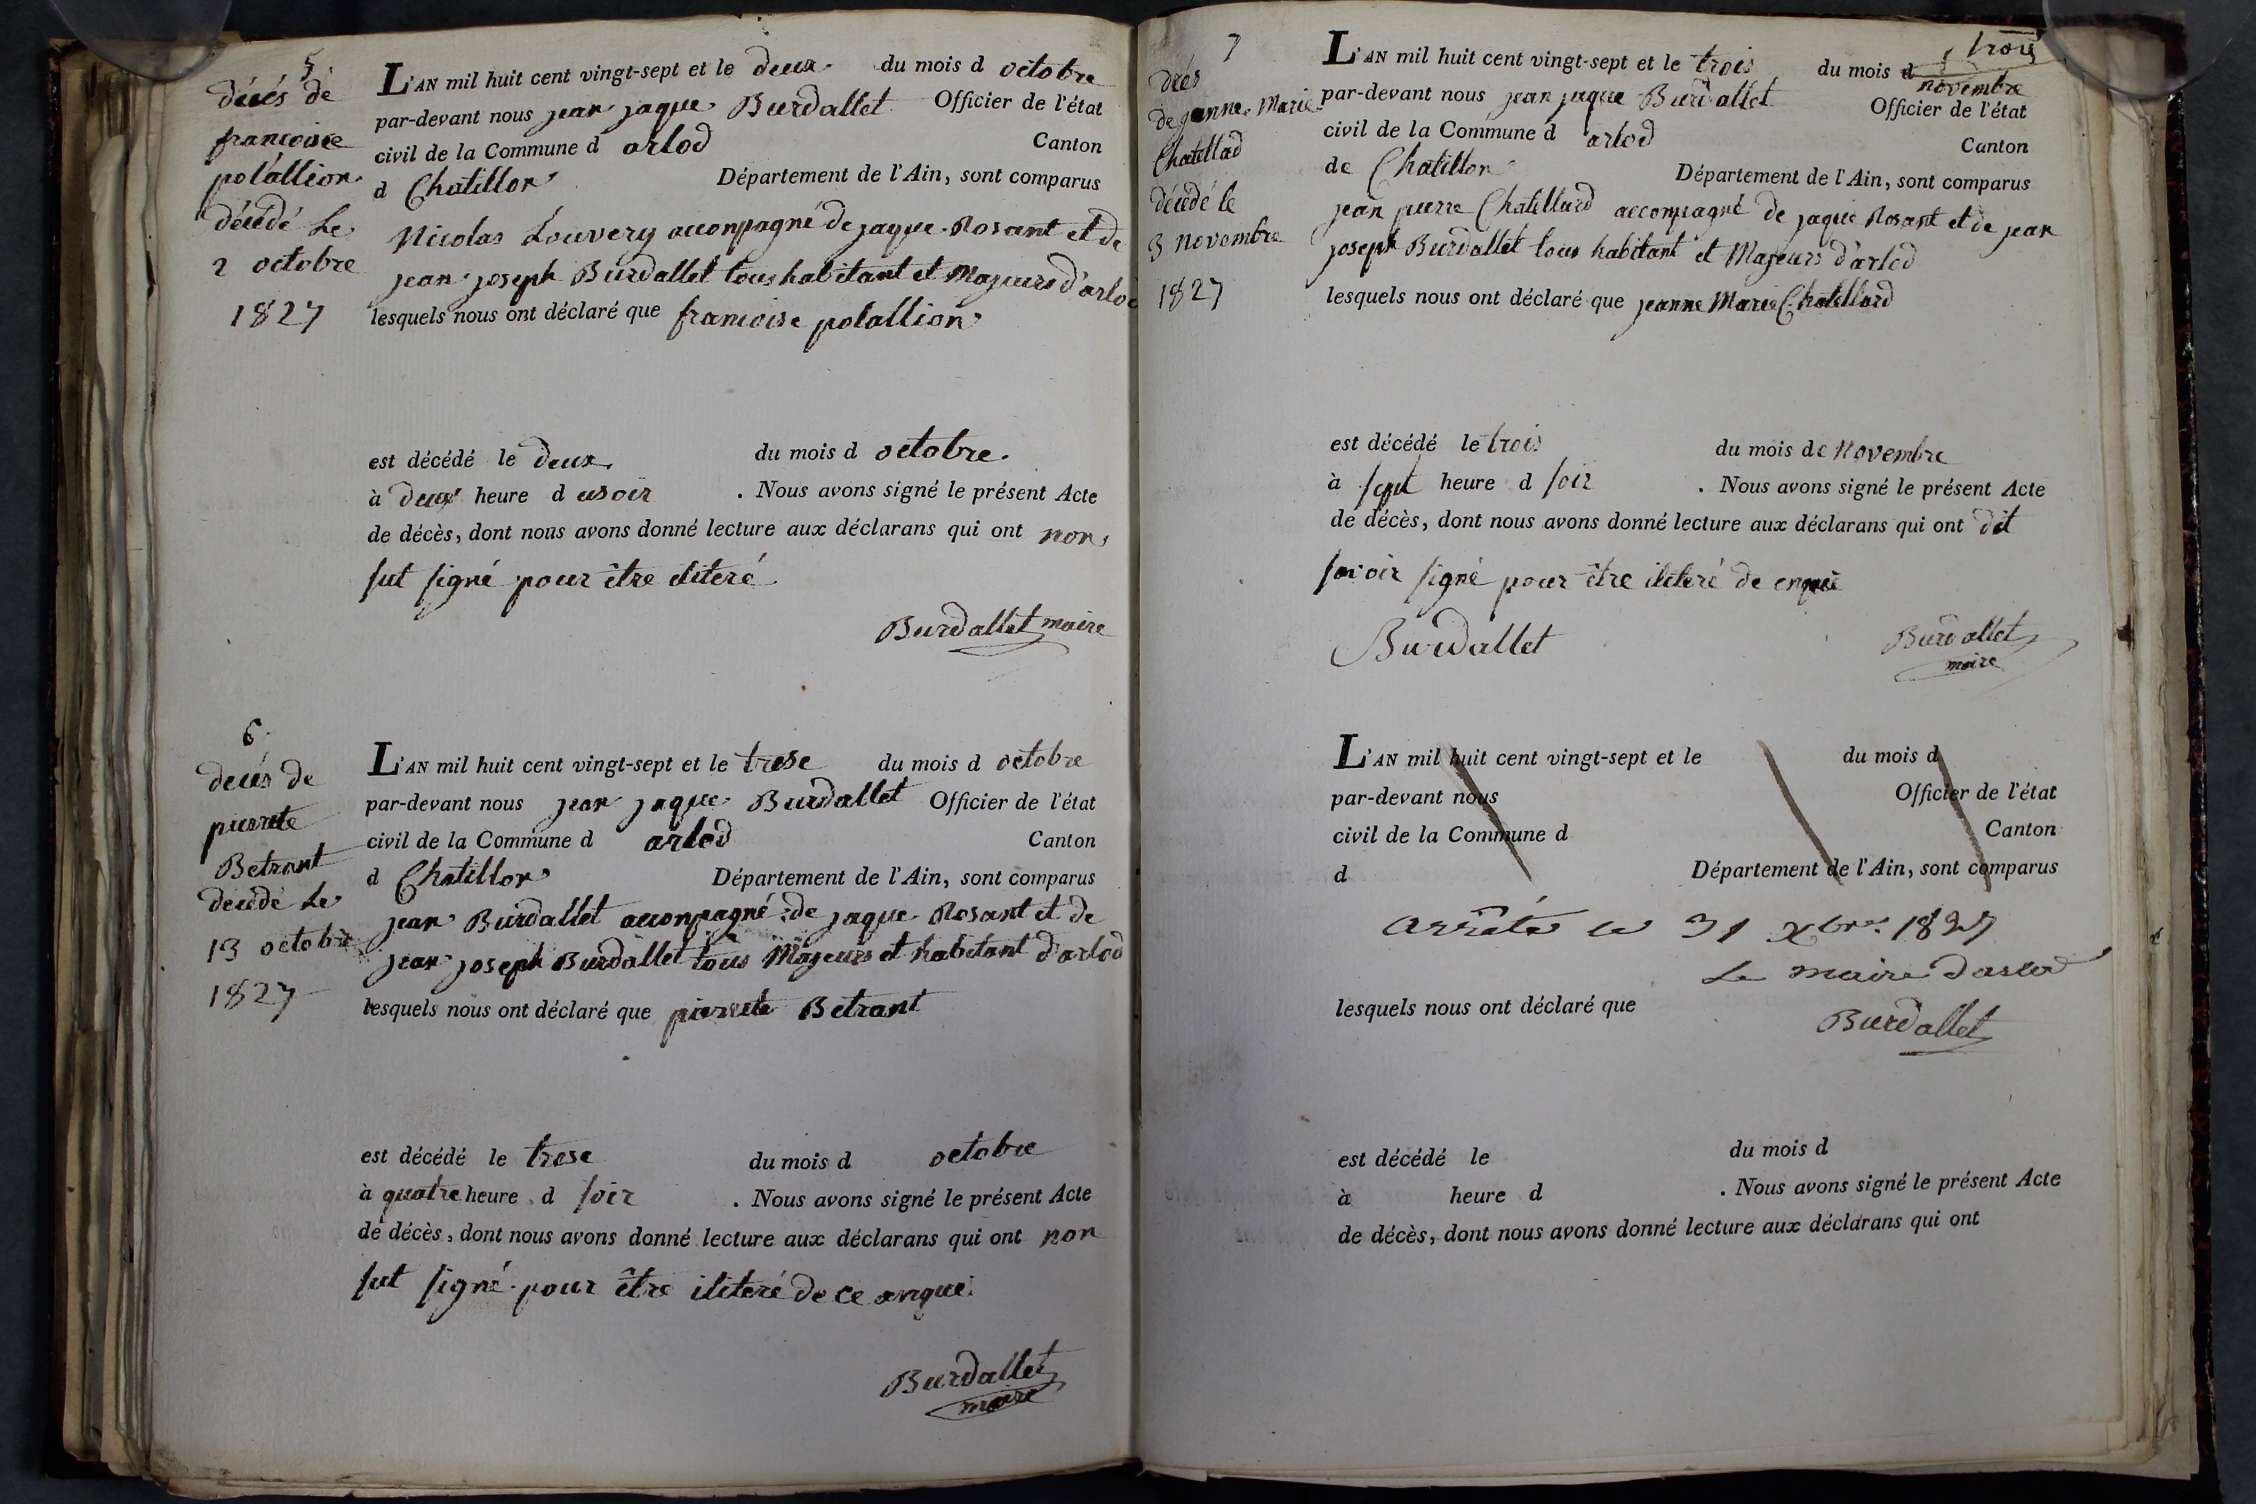 5.
décés de
francoise
polallion
décédé Le
2 octobre
1827
L'AN mil huit cent vingt-sept et le deux du mois d octobre
par-devant nous jean jaque Burdallet Officier de l'état
civil de la Commune d arlod Canton
d Chatillon Département de l'Ain, sont comparus
Nicolas Louvery acconpagné de jaque Rosant et de
jean joseph Burdallet tous habitant et Majeurs d'arlod
lesquels nous ont déclaré que francoise polallion
est décédé le deux du mois d octobre.
à deux heure d usoir . Nous avons signé le présent Acte
de décès, dont nous avons donné lecture aux déclarans qui ont non
sut signé pour être iliteré
Burdallet maire
6.
decés de
pierrete
Betrant
decédé Le
13 octobre
1827
L'AN mil huit cent vingt-sept et le trese du mois d octobre
par-devant nous jean jaque Burdallet Officier de l'état
civil de la Commune d arlod Canton
d Chatillon Département de l'Ain, sont comparus
jean Burdallet acconpagné de jaque Rosant et de
jean joseph Burdallet tous Majeurs et habitant d'arlod
lesquels nous ont déclaré que pierrete Betrant
est décédé le trese du mois d octobre
à quatre heure d soir . Nous avons signé le présent Acte
de décès, dont nous avons donné lecture aux déclarans qui ont non
sut signé pour être iliteré de ce
Burdallet
maire
7
de jeanne Marie
Chatellad
décédé le
3 novembre
1827
L'AN mil huit cent vingt-sept et le trois du mois d trois
novembre
par-devant nous jean jaque Burdallet Officier de l'état
civil de la Commune d arlod Canton
de Chatillon Département de l'Ain, sont comparus
jean pierre Chatellard acconpagné de jaque Rosant et de jean
joseph Burdallet tous habitant et Majeurs d'arlod
lesquels nous ont déclaré que jeanne Marie Chatellard
est décédé le trois du mois de Novembre
à sept heure d soir . Nous avons signé le présent Acte
de décès, dont nous avons donné lecture aux déclarans qui ont dit
savoir signé pour être iliteré de
Burdallet
Burdallet
maire
L'AN mil huit cent vingt-sept et le du mois d
par-devant nous Officier de l'état
civil de la Commune d Canton
d Département de l'Ain, sont comparus
Arrêté le 31 Xbre 1827
Le maire d'arlod
lesquels nous ont déclaré que
Burdallet
est décédé le du mois d
à heure d . Nous avons signé le présent Acte
de décès, dont nous avons donné lecture aux déclarans qui ont